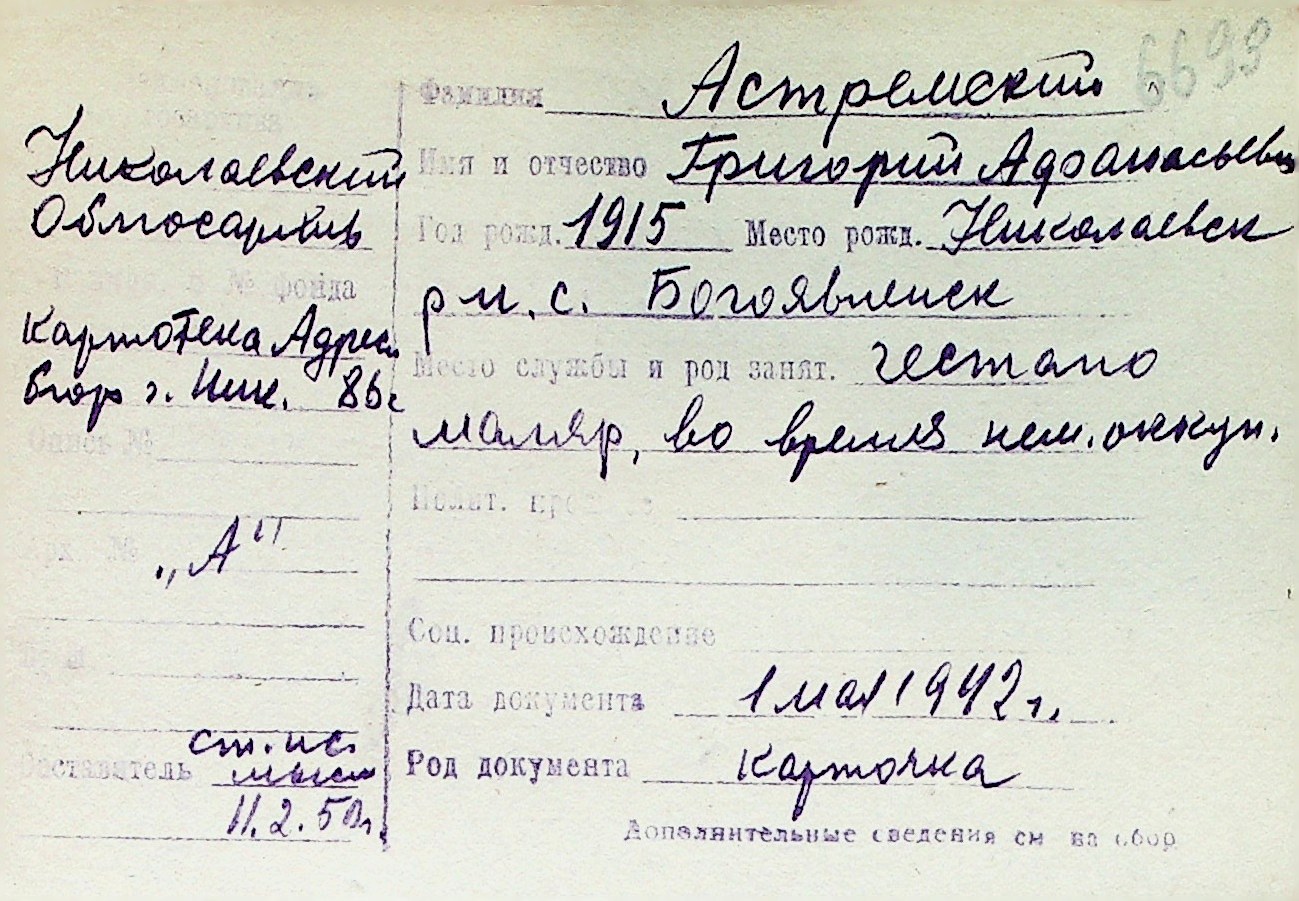 6699
Фамилия Астремский
Имя и отчество Григорий Афанасьев
Год рожд. 1915 Место рожд. Николаевск
р-н, с. Богоявленск
Место службы и род занят. гестапо
маляр, во время нем. оккуп.
Полит.
Соц. происхождение
Дата документа 1 мая 1942 г.
Род документа карточка
Дополнительные сведения см на обор
Николаевский
Облгосархив
№ фонда
Картотека Адресн
бюро г. Ник.
Опись №
Арх. № „А"
Составитель ст. нс.
11.2.50г.